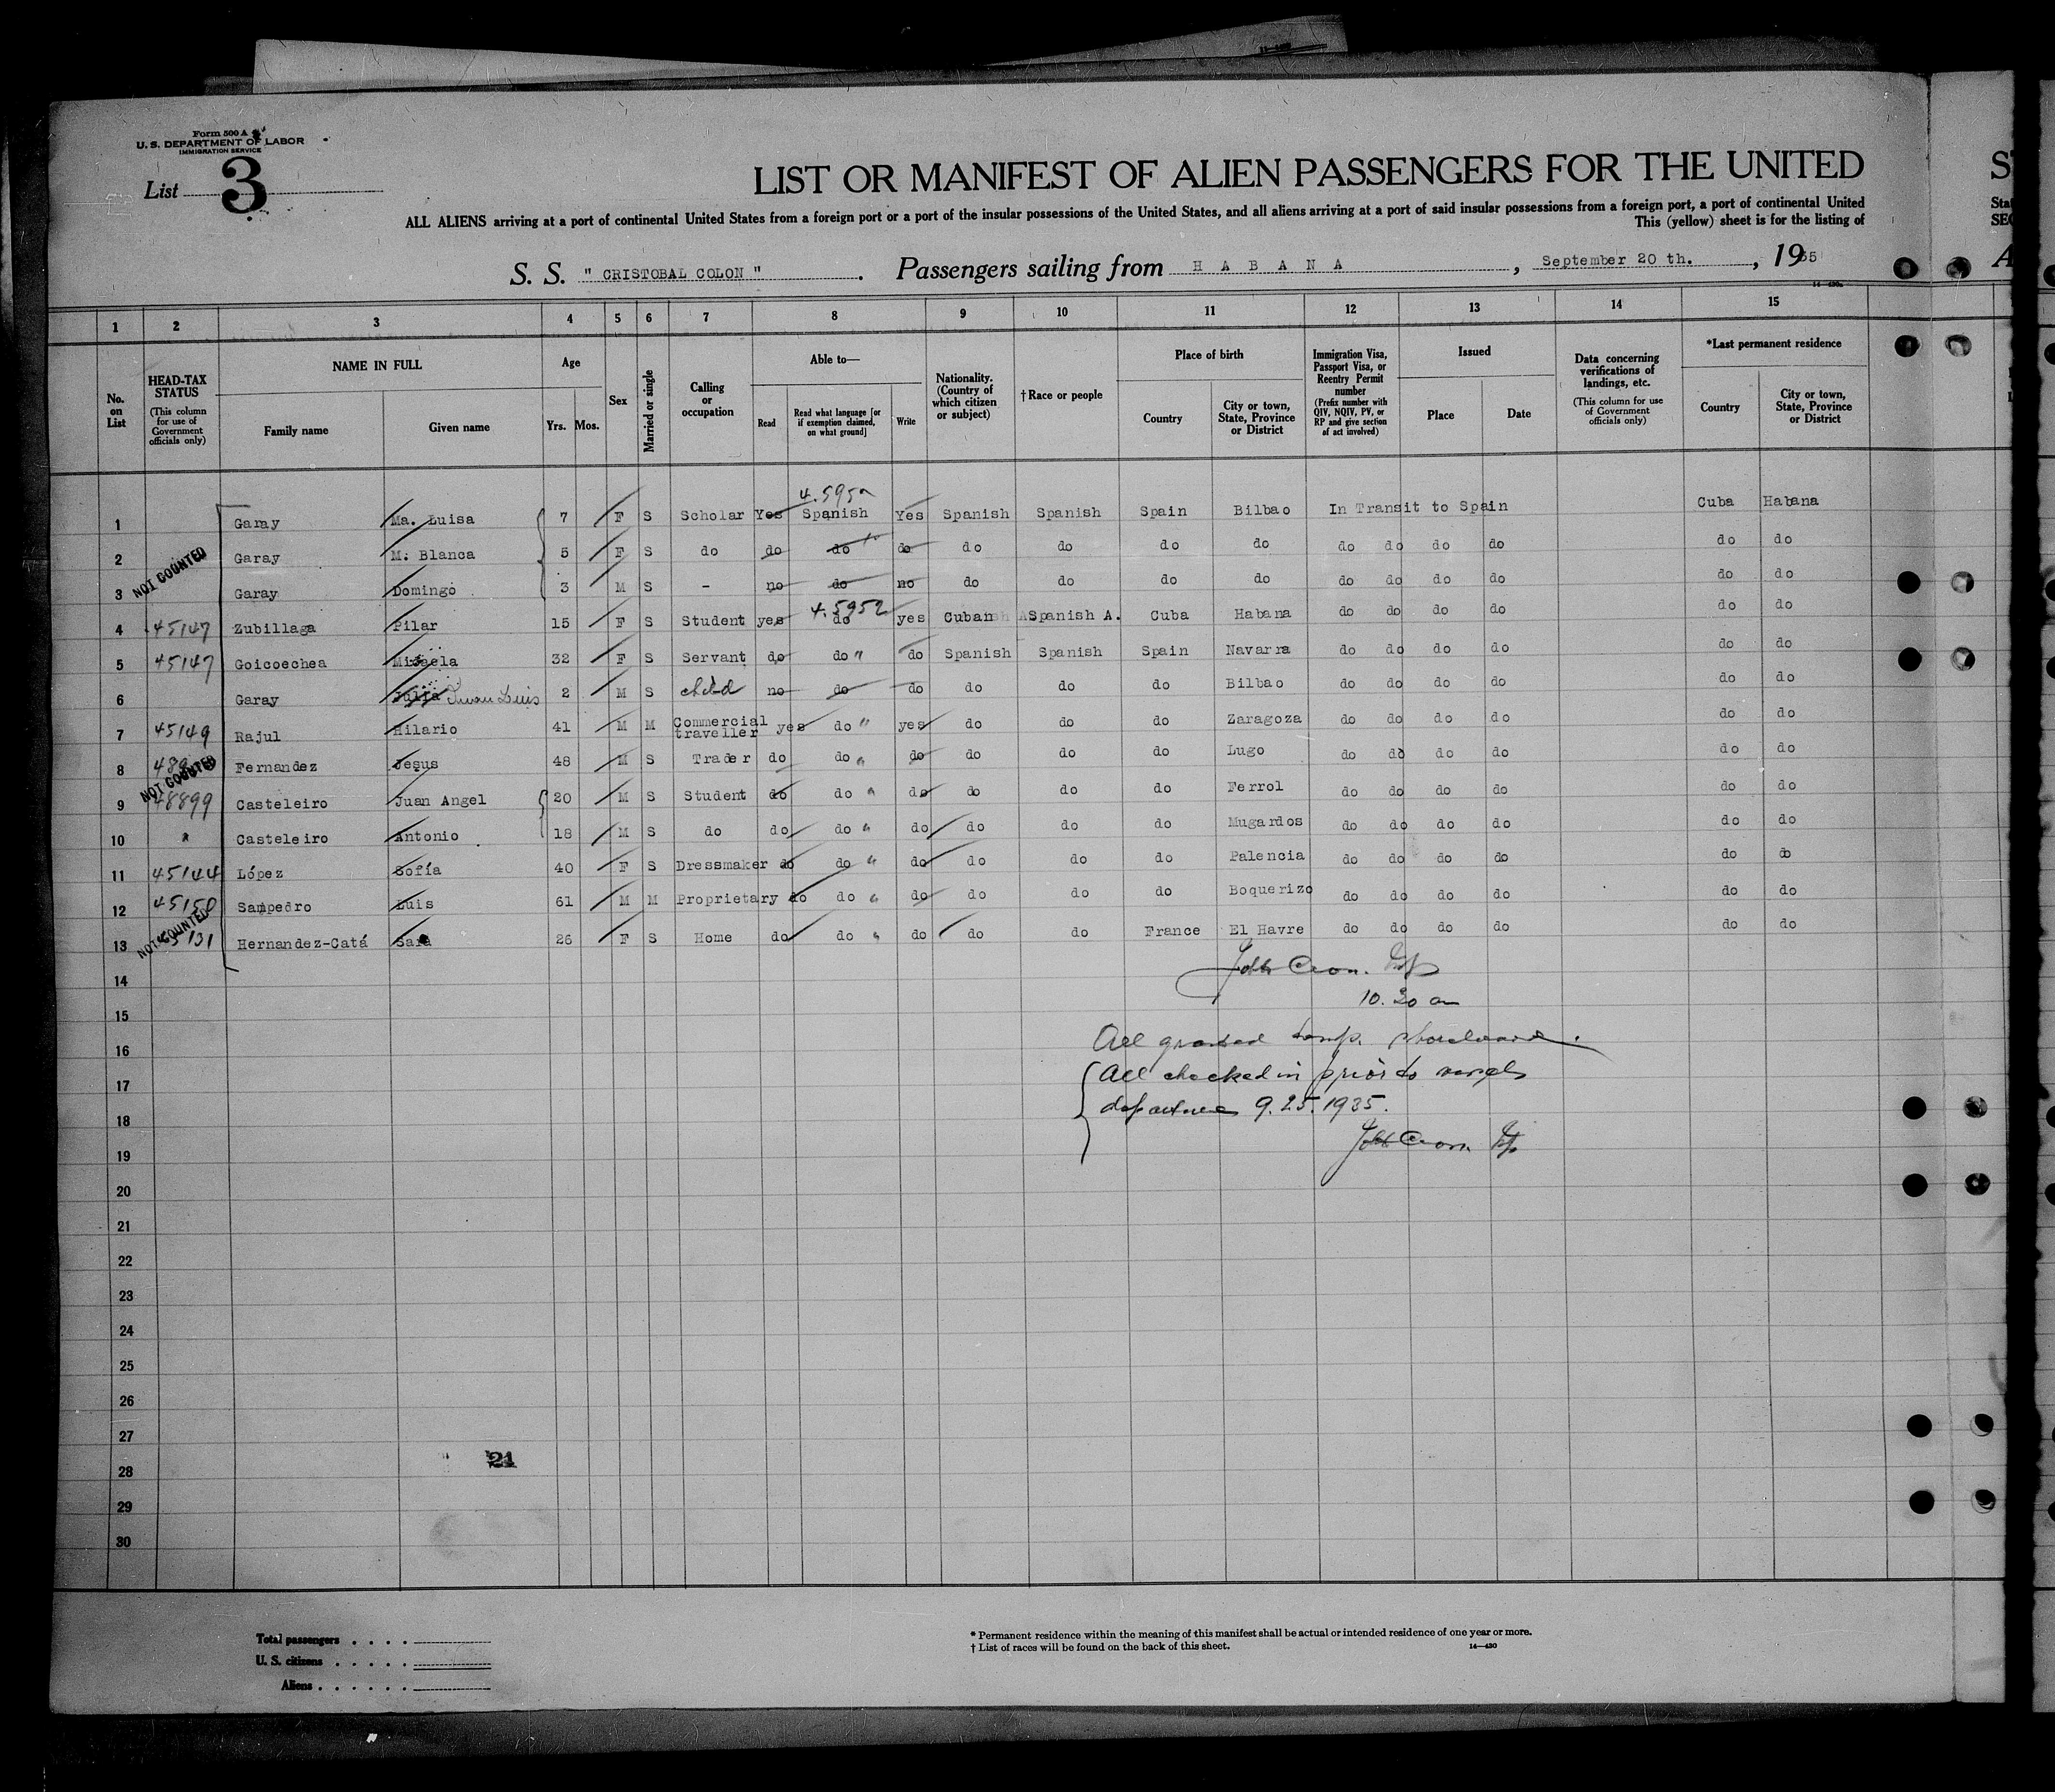 Form 500 A
U. S. DEPARTMENT OF LABOR
IMMIGRATION SERVICE
List 3
LIST OR MANIFEST OF ALIEN PASSENGERS FOR THE UNITED
ALL ALIENS arriving at a port of continental United States from a foreign port or a port of the insular possessions of the United States, and all aliens arriving at a port of said insular possessions from a foreign port, a port of continental United
This (yellow) sheet is for the listing of
S. S. " CRISTOBAL COLON " . Passengers sailing from H A B A N A , September 20 th. , 1935
1 2 3 4 5 6 7 8 9 10 11 12 13 14 15
No. on List
HEAD-TAX STATUS (This column for use of Government officials only)
NAME IN FULL
Family name Given name
Age
Yrs. Mos.
Sex
Married or single
Calling or occupation
Able to—
Read Read what language [or if exemption claimed, on what ground] Write
Nationality. (Country of which citizen or subject)
† Race or people
Place of birth
Country City or town, State, Province or District
Immigration Visa, Passport Visa, or Reentry Permit number (Prefix number with QIV, NQIV, PV, or RP and give section of act involved)
Issued
Place Date
Data concerning verifications of landings, etc. (This column for use of Government officials only)
*Last permanent residence
Country City or town, State, Province or District
1 Garay Ma. Luisa 7 F S Scholar Yes Spanish Yes Spanish Spanish Spain Bilbao In Transit to Spain Cuba Habana
2 Garay M. Blanca 5 F S do do do do do do do do do do do do do do
NOT COUNTED
3 Garay Domingo 3 M S - no do no do do do do do do do do do do
4.5952
4 45147 Zubillaga Pilar 15 F S Student yes do yes Cuban Spanish A. Cuba Habana do do do do do do
5 45147 Goicoechea Micaela 32 F S Servant do do " do Spanish Spanish Spain Navarra do do do do do do
6 Garay Julia Juan Luis 2 M S child no do do do do do Bilbao do do do do do do
7 45149 Rajul Hilario 41 M M Commercial traveller yes do " yes do do do Zaragoza do do do do do do
8 Fernandez Jesus 48 M S Trader do do " do do do do Lugo do do do do do do
NOT COUNTED
9 48899 Casteleiro Juan Angel 20 M S Student do do " do do do do Ferrol do do do do do do
10 " Casteleiro Antonio 18 M S do do do " do do do do Mugardos do do do do do do
11 45144 López Sofía 40 F S Dressmaker do do " do do do do Palencia do do do do do do
12 45150 Sampedro Luis 61 M M Proprietary do do " do do do do Boquerizo do do do do do do
NOT COUNTED
13 Hernandez-Catá Sara 26 F S Home do do " do do do France El Havre do do do do do do
14
10.30 am
15
16 All granted temp.
17 All checked in prior to vessels
18 departure 9.25.1935.
19
20
21
22
23
24
25
26
27
21
28
29
30
Total passengers . . . .
U. S. citizens . . . . .
Aliens . . . . . .
* Permanent residence within the meaning of this manifest shall be actual or intended residence of one year or more.
† List of races will be found on the back of this sheet. 14—430